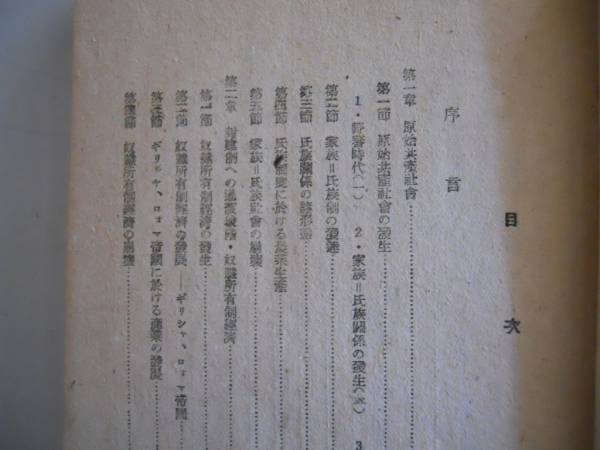 目次
序言
第一章 原始共産社會
第一節 原始共産社會の發生
1・野蕃時代(一) 2・家族=氏族關係の發生(五) 3
第二節 家族=氏族制の發達
第三節 氏族關係の諸形態
第四節 氏族制度に於ける農業生産
第五節 家族=氏族社會の崩壞
第二章 封建制への過渡段階・奴隷所有制經濟
第一節 奴隷所有制經濟の發生
第二節 奴隷所有制經濟の發展——ギリシャ、ローマ帝國
第三節 ギリシャ、ローマ帝國に於ける産業の發展
第四節 奴隷所有制經濟の崩壞